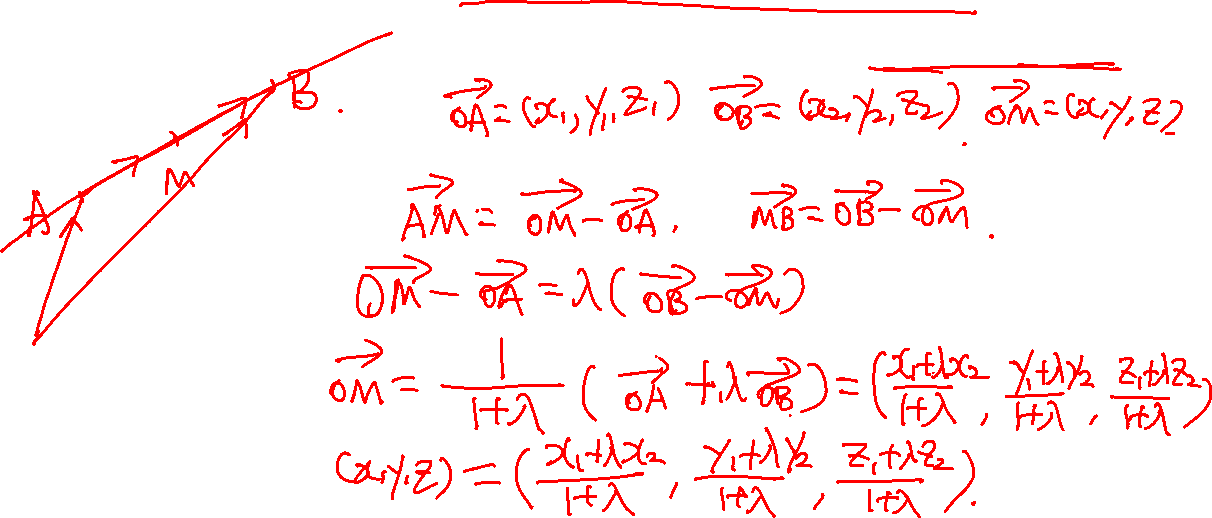 B.
M
A
$\overrightarrow{OA}=(x_1,y_1,z_1)$ $\overrightarrow{OB}=(x_2,y_2,z_2)$. $\overrightarrow{OM}=(x,y,z)$
$\overrightarrow{AM}=\overrightarrow{OM}-\overrightarrow{OA}$, $\overrightarrow{MB}=\overrightarrow{OB}-\overrightarrow{OM}$.
$\overrightarrow{OM}-\overrightarrow{OA}=\lambda(\overrightarrow{OB}-\overrightarrow{OM})$
$\overrightarrow{OM}=\frac{1}{1+\lambda}(\overrightarrow{OA}+\lambda\overrightarrow{OB})=(\frac{x_1+\lambda x_2}{1+\lambda},\frac{y_1+\lambda y_2}{1+\lambda},\frac{z_1+\lambda z_2}{1+\lambda})$
$(x,y,z)=(\frac{x_1+\lambda x_2}{1+\lambda},\frac{y_1+\lambda y_2}{1+\lambda},\frac{z_1+\lambda z_2}{1+\lambda})$.